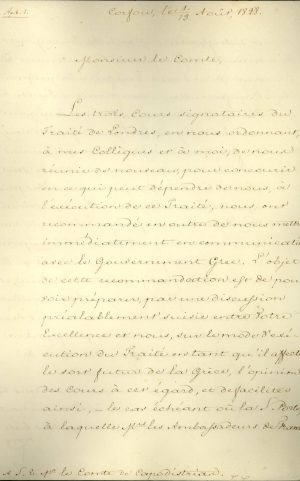 Corfou, le 1/13 Août, 1828.
Monsieur le Comte,
Les trois Cours signataires du
Traité de Londres, en nous ordonnant,
à mes Collègues et à moi, de nous
réunir de nouveau, pour concourir
en ce qui peut dépendre de nous, à
l'exécution de ce Traité, nous ont
recommandé en outre de nous mettre
immédiatement en communication
avec le Gouvernement Grec. L'objet
de cette recommandation est de pou-
voir préparer, par une discussion
préalablement suivie entre Votre
Excellence et nous, sur le mode d'exé-
cution du Traité en tant qu'il affecte
le sort futur de la Grèce, l'opinion
des Cours à cet égard, et de faciliter
ainsi, – le cas échéant où la S. Porte,
à laquelle M.rs les Ambassadeurs de
à S. E. M.r le Comte de Capodistrias.